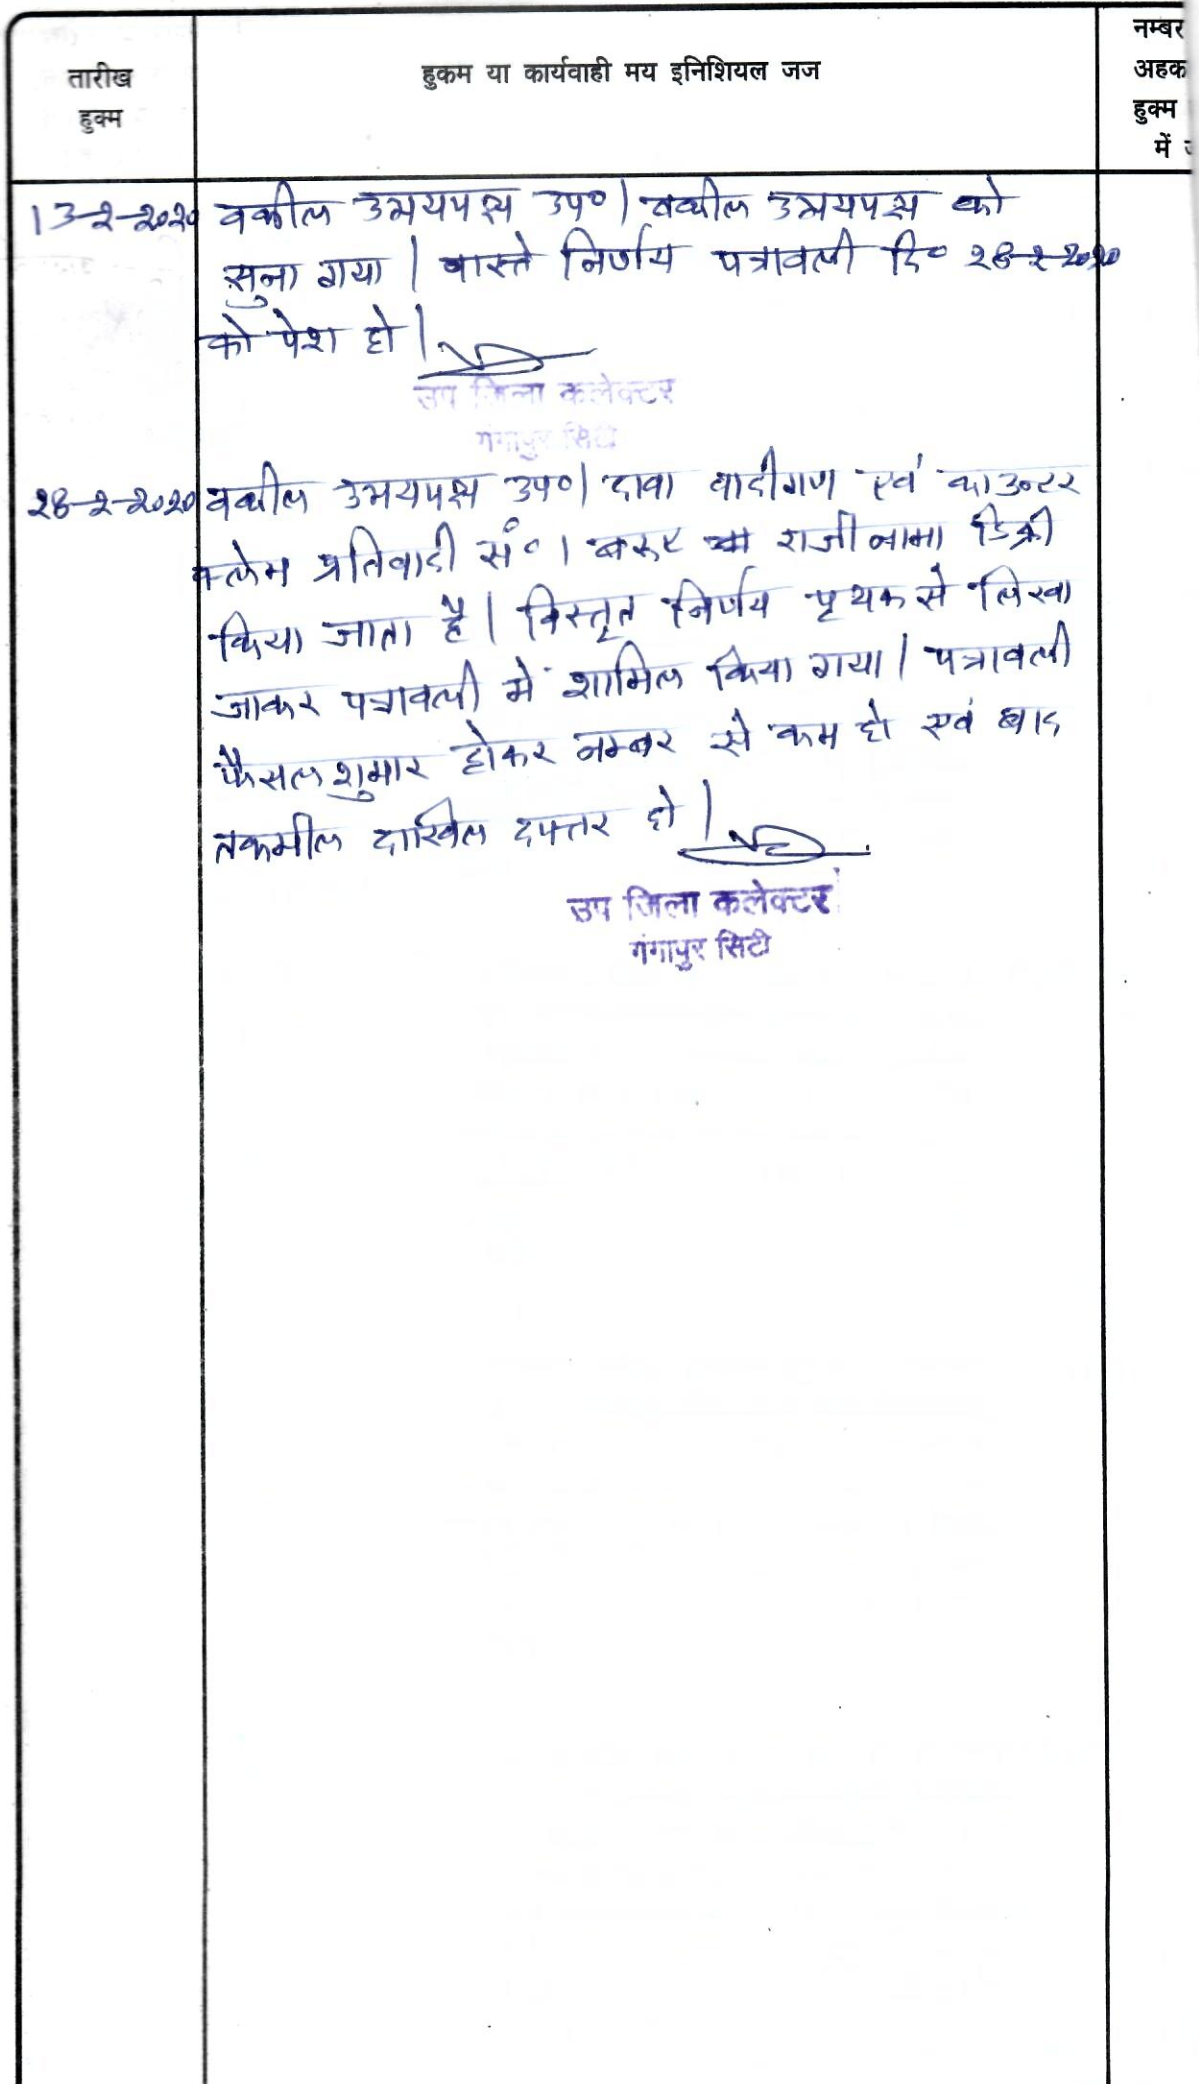 तारीख
हुक्म
हुकम या कार्यवाही मय इनिशियल जज
नम्बर
अहक
हुक्म
में
13-2-2020 वकील उभयपक्ष उप० | वकील उभयपक्ष को
सुना गया | वास्ते निर्णय पत्रावली दि० 28-2-2020
को पेश हो |
उप जिला कलेक्टर
गंगापुर सिटी
28-2-2020 वकील उभयपक्ष उप० | दावा वादीगण एवं काउन्टर
क्लेम प्रतिवादी सं० 1 बरूए राजीनामा डिक्री
किया जाता है | विस्तृत निर्णय पृथक से लिखा
जाकर पत्रावली में शामिल किया गया | पत्रावली
फैसल शुमार होकर नम्बर से कम हो एवं बाद
तकमील दाखिल दफ्तर हो |
उप जिला कलेक्टर
गंगापुर सिटी